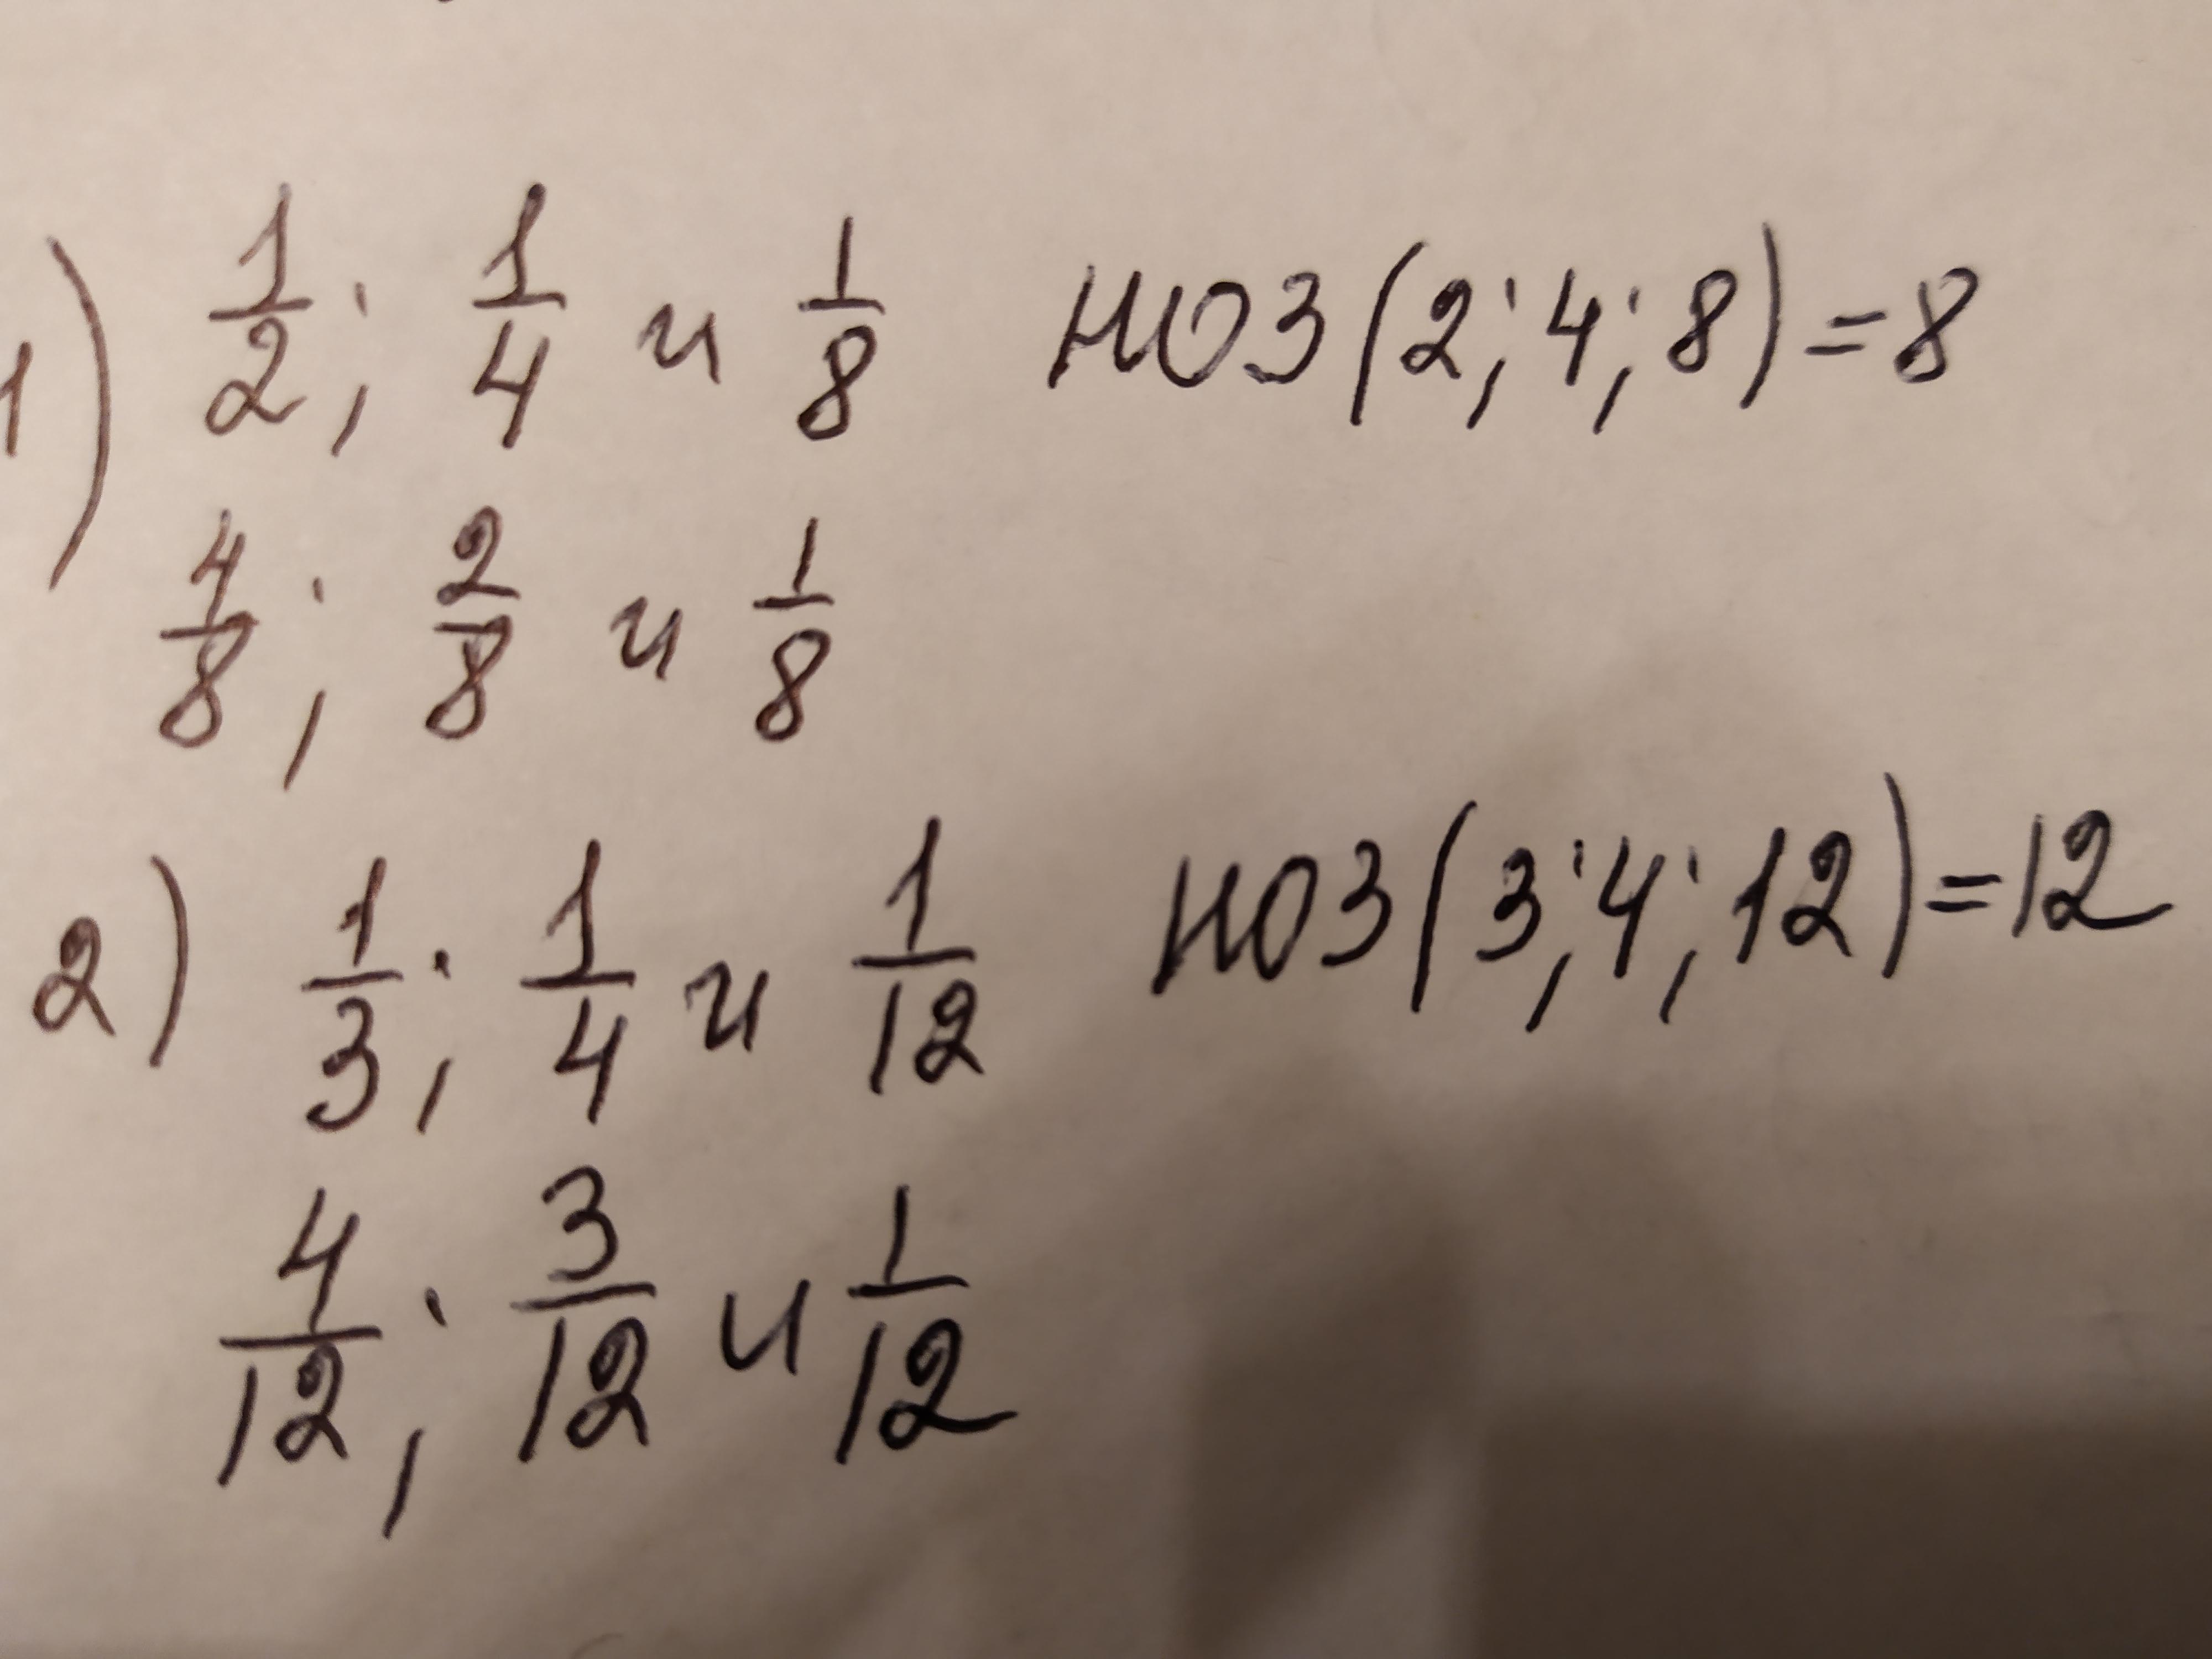 1) 1/2; 1/4 и 1/8 НОЗ(2;4;8)=8
4/8; 2/8 и 1/8
2) 1/3; 1/4 и 1/12 НОЗ(3;4;12)=12
4/12; 3/12 и 1/12